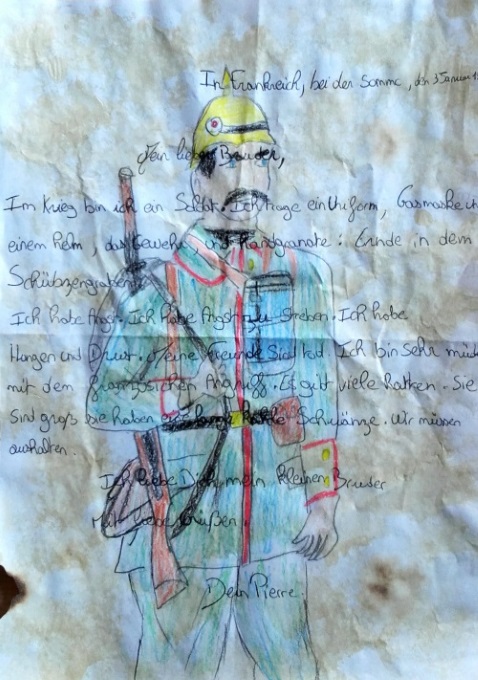 In Frankreich, bei der Somme, den 3 Januar
Mein lieber Bruder,
Im Krieg bin ich ein Soldat. Ich trage ein Uniform, Gasmaske
einem Helm, das Gewehr und Handgranate: Ende in dem
Schützengraben
Ich habe Angst. Ich habe Angst zu streben. Ich habe
Hungen und Durst. Meine Freunde Sind tod. Ich bin sehr müd
mit dem Französichen Angriff. Es gibt viele Ratten. Sie
sind groß sie haben lange Schwänze. Wir müssen
aushalten.
Ich liebe Dich mein kleinen Bruder
Mit liebe
Dein Pierre.